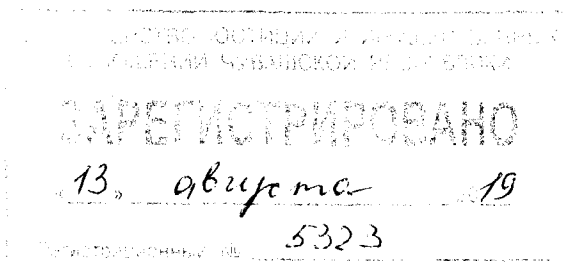 ЮСТИЦИИ И
ЧУВАШСКОЙ РЕСПУБЛИКИ
ЗАРЕГИСТРИРОВАНО
13 августа 19
5323
Регистрационный №